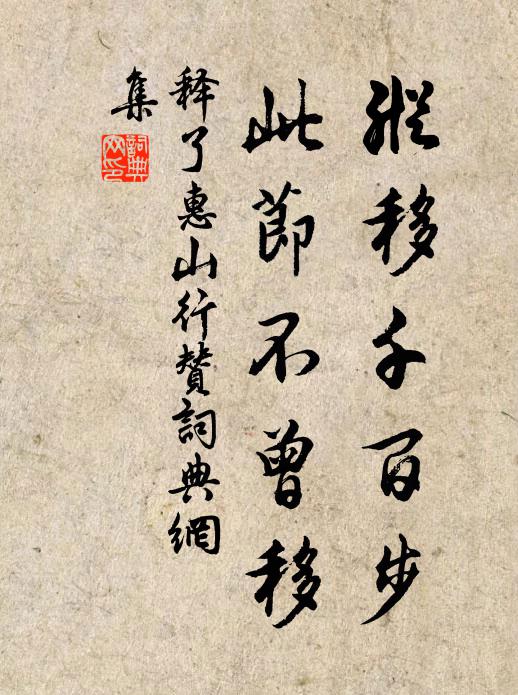 縱移千百步
此節不曾移
释了惠山行贊詞典網
集
詞典
网印